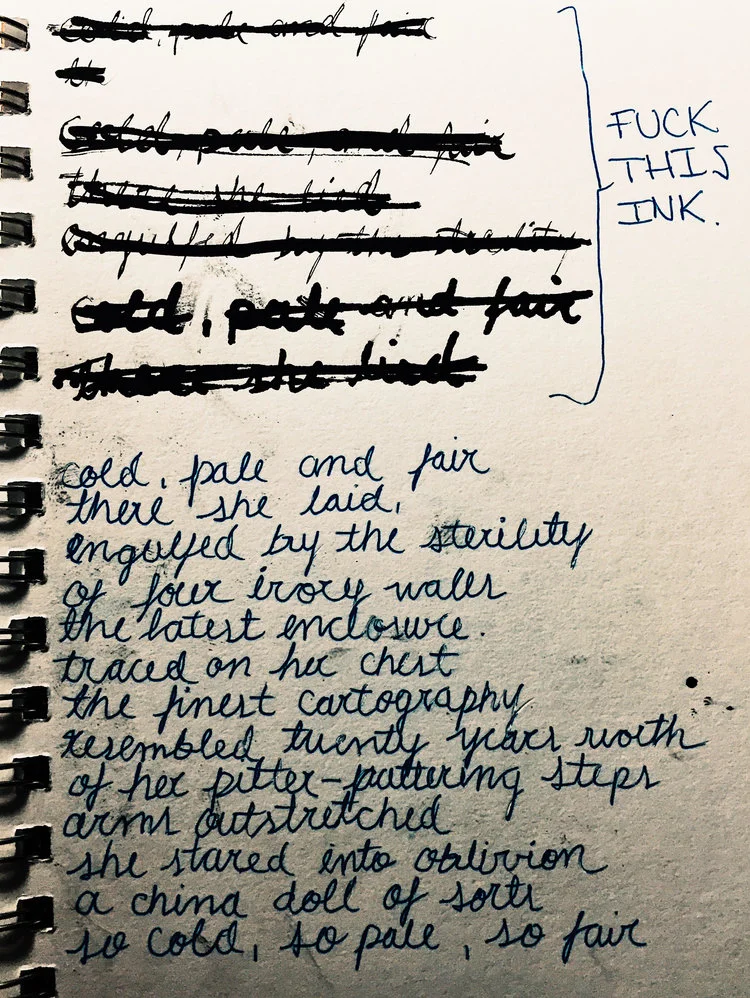 cold, pale and fair
cold, pale, and fair
there she lied
engulfed by the sterility
cold, pale and fair
there she lied
FUCK
THIS
INK.
cold, pale and fair
there she laid,
engulfed by the sterility
of four ivory walls
the latest enclosure.
traced on her chest
the finest cartography
resembled twenty years worth
of her pitter-pattering steps
arms outstretched
she stared into oblivion
a china doll of sorts
so cold, so pale, so fair